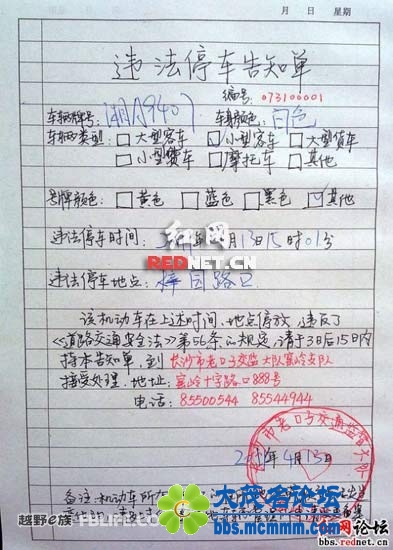 月 日 星期
违法停车告知单
编号:073100001
车辆牌号:湘A9407 车身颜色:白色
车辆类型:□大型客车 □小型客车 □大型货车
□小型货车 □摩托车 □其他
号牌颜色:□黄色 □蓝色 □黑色 ☑其他
红网
REDNET.CN
违法停车时间: 年 月13日15时01分
违法停车地点: 园路口
该机动车在上述时间、地点停放,违反了
《道路交通安全法》第56条的规定,请于3日后15日内
持本告知单,到长沙市老口子交监大队窝岭支队
接受处理,地址:窝岭十字路口888号
电话:85500544 85544944
市老口子交通监督大队
年4月13日
备注:机动车所有
大茂名论坛
越野e族 FBLIFE.COM
红网论坛
bbs.rednet.cn